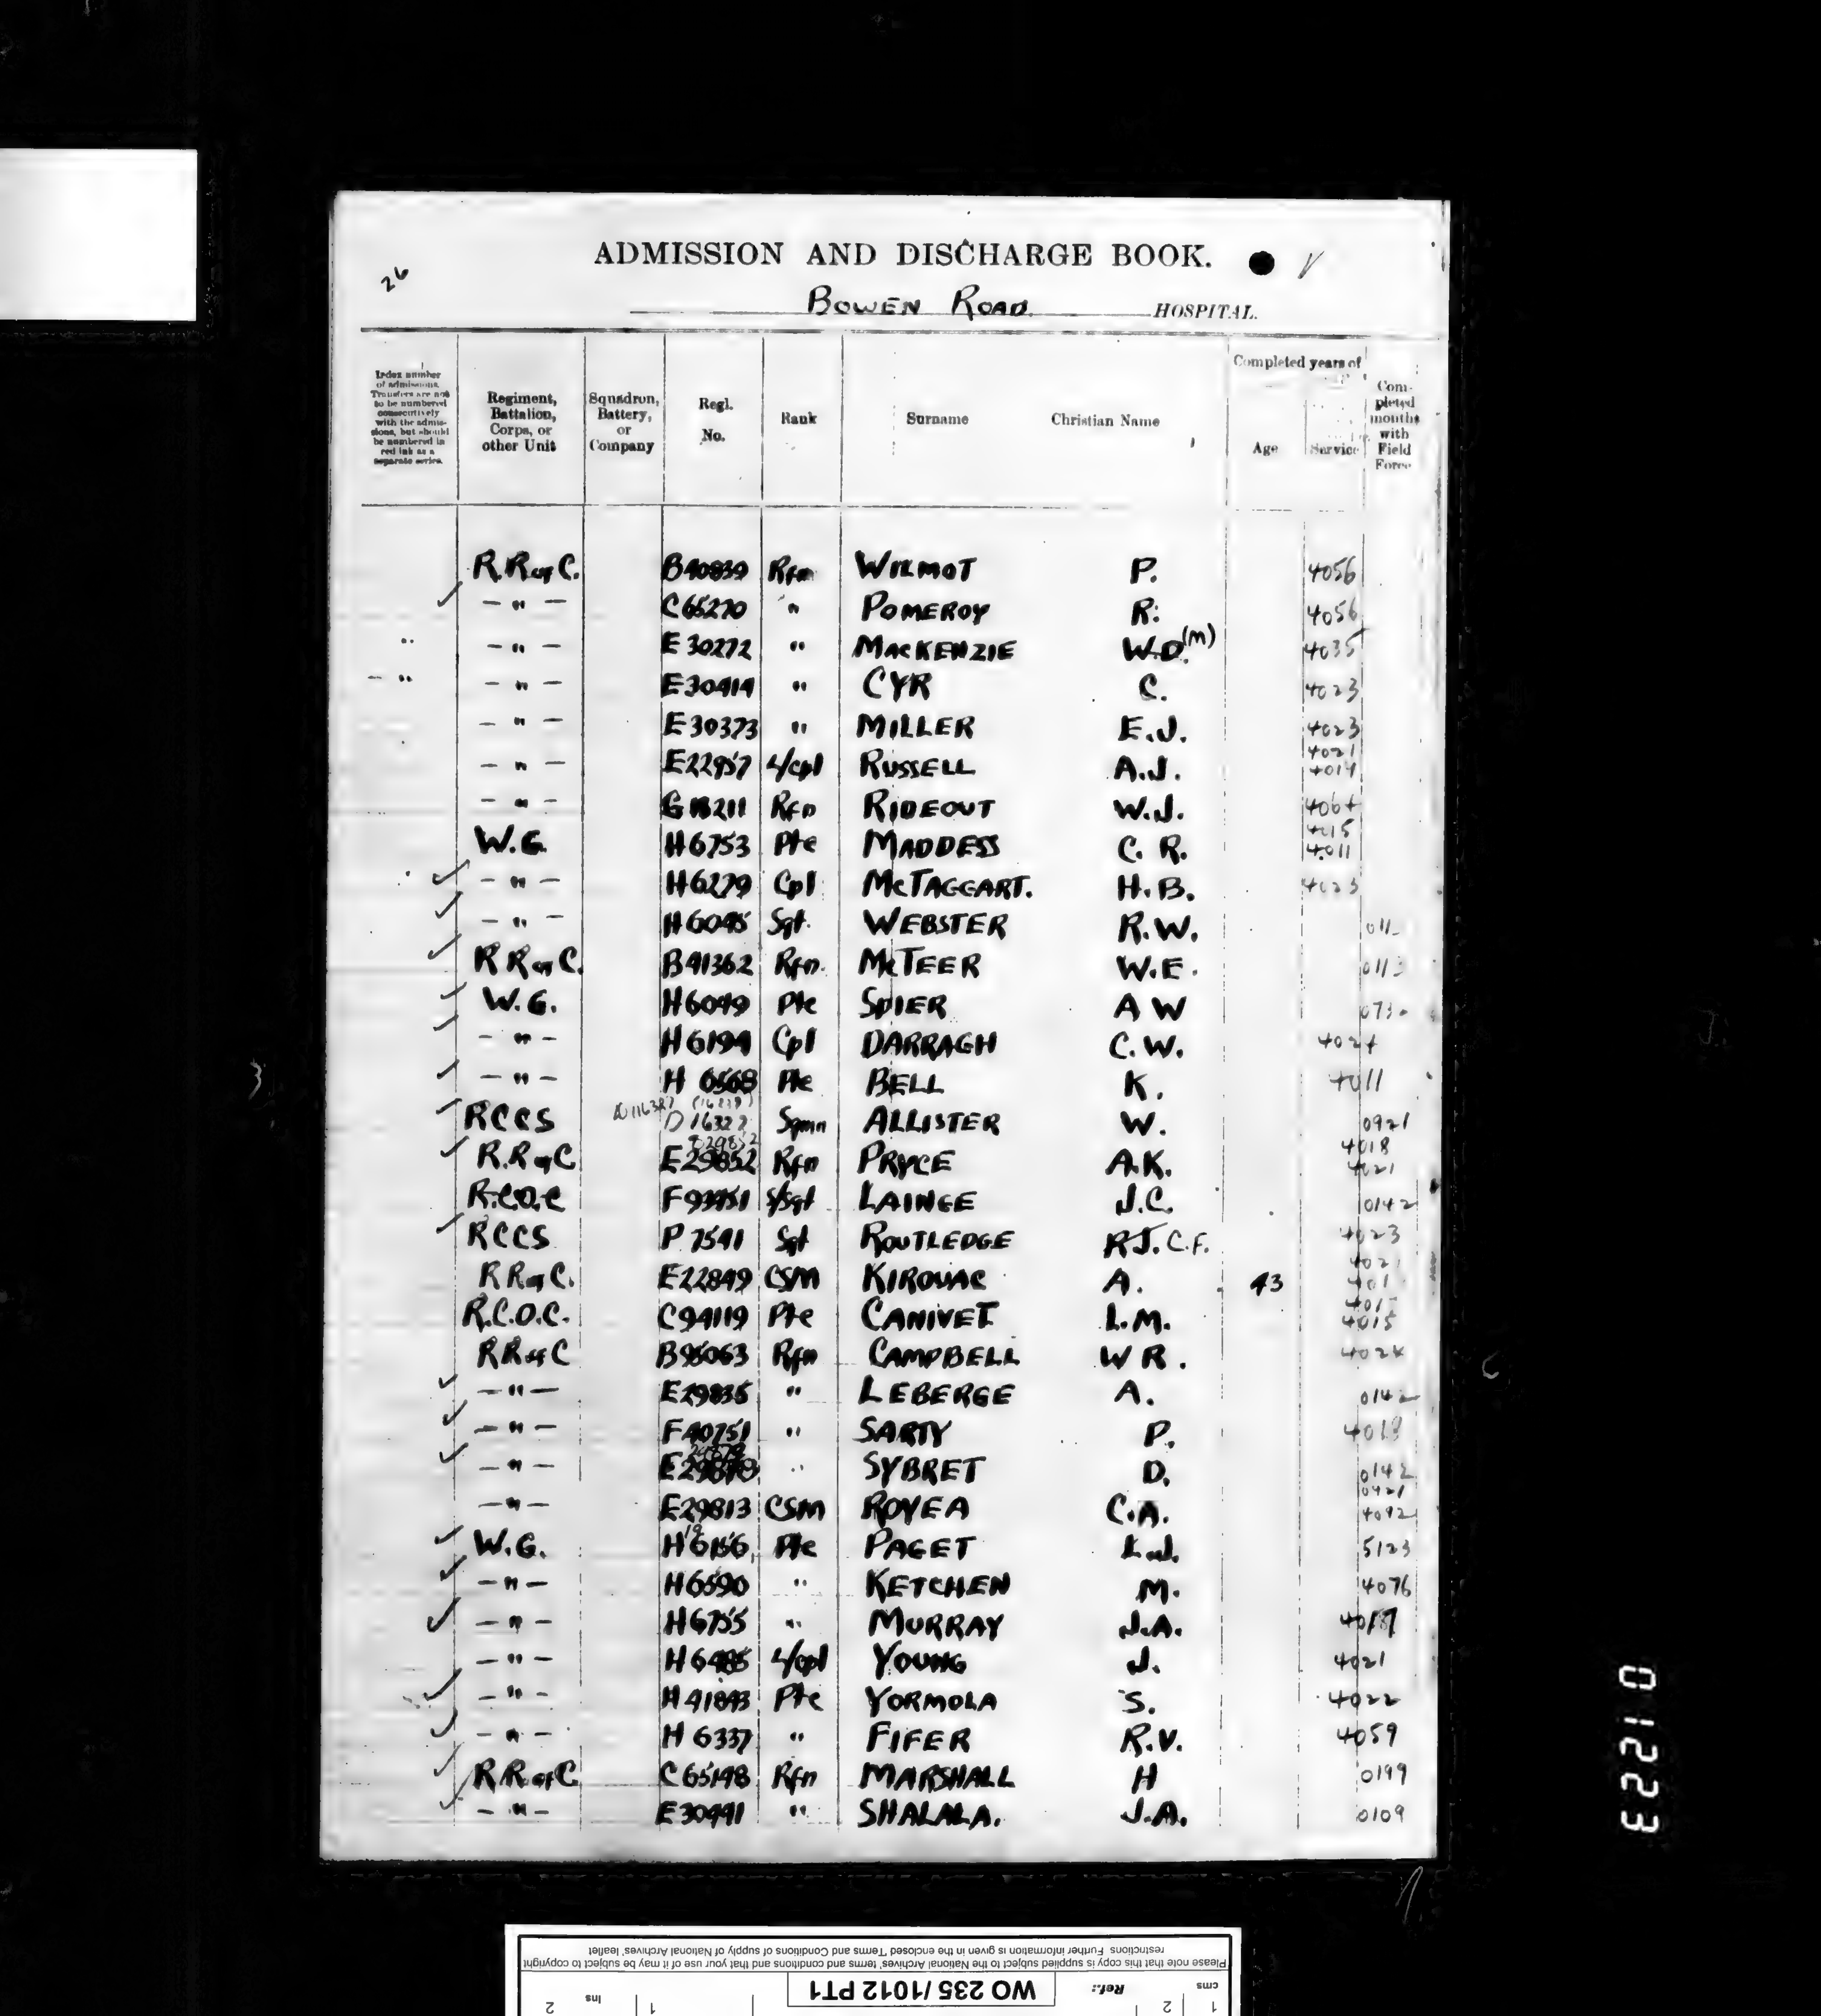 ADMISSION AND DISCHARGE BOOK.
26
BOWEN ROAD HOSPITAL.
Index number of admissions. Transfers are not to be numbered consecutively with the admissions, but should be numbered in red ink as a separate series.
Regiment, Battalion, Corps, or other Unit
Squadron, Battery, or Company
Regl. No.
Rank
Surname
Christian Name
Completed years of
Age
Service
Completed months with Field Force
R.R of C. B40839 Rfn WILMOT P. 4056
✓ - " - C65270 " POMEROY R. 4056
" - " - E30272 " MACKENZIE W.D.(M) 4035
- " - " - E30414 " CYR C. 4023
- " - E30373 " MILLER E.J. 4023
4021
- " - E22957 L/Cpl RUSSELL A.J. 4014
- " - G18211 Rfn RIDEOUT W.J.
4015
W.G. H6753 Pte MADDESS C. R. 4011
✓ - " - H6279 Cpl McTAGGART. H.B. 4023
✓ - " - H6045 Sgt. WEBSTER R.W. 011
✓ R R of C. B41362 Rfn. McTEER W.E. 0113
✓ W.G. H6049 Pte SPIER A W 073
✓ - " - H6194 Cpl DARRAGH C.W.
✓ - " - H 6568 Pte BELL K. 4011
✓ RCCS D16327 Sgmn ALLISTER W. 0921
E29852 4018
✓ R.R of C E29852 Rfn PRYCE A.K. 4021
R.C.O.C F93951 S/Sgt LAINGE J.C. 0142
✓ RCCS P 7541 Sgt ROUTLEDGE R.J.C.F. 4023
4021
R R of C. E22849 CSM KIROUAC A. 43 401
R.C.O.C. C94119 Pte CANIVET L.M. 4015
R R of C B95063 Rfn CAMPBELL W R. 4024
✓ - " - E29835 " LEBERGE A. 0142
✓ - " - F40751 " SARTY P. 4018
29878
✓ - " - E29878 " SYBRET D. 0142
0421
- " - E29813 CSM ROYEA C.A. 4092
✓ W.G. H6156 Pte PAGET L.J. 5123
✓ - " - H6590 " KETCHEN M. 4076
✓ - " - H6755 " MURRAY J.A.
- " - H6485 L/Cpl YOUNG J. 4021
✓ - " - H41843 Pte YORMOLA S. 4022
✓ - " - H 6337 " FIFER R.V. 4059
✓ R R of C C65148 Rfn MARSHALL H 0199
✓ - " - E30491 " SHALALA. J.A. 0109
01223
Please note that this copy is supplied subject to the National Archives' terms and conditions and that your use of it may be subject to copyright
restrictions. Further information is given in the enclosed 'Terms and Conditions of supply of National Archives' leaflet
cms 1 2 Ref.: WO 235/1012 PT1 1 Ins 2